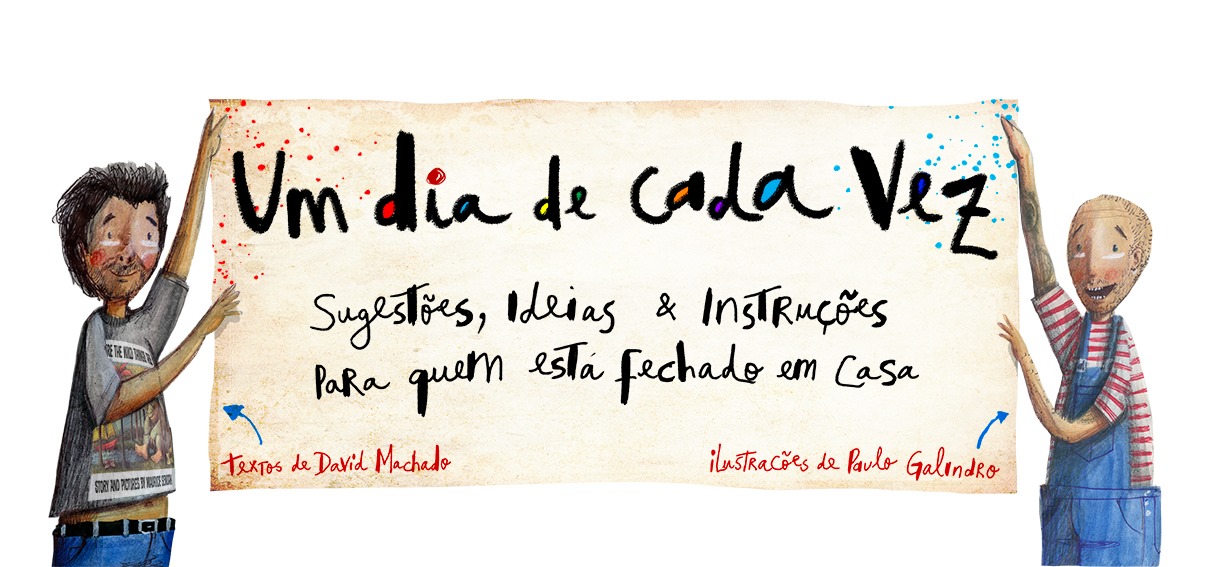 Um dia de cada Vez
Sugestões, Ideias & Instruções
para quem está fechado em casa
textos de David Machado
ilustrações de Paulo Galindro
RE THE WILD THINGS
STORY AND PICTURES BY MAURICE SENDAK